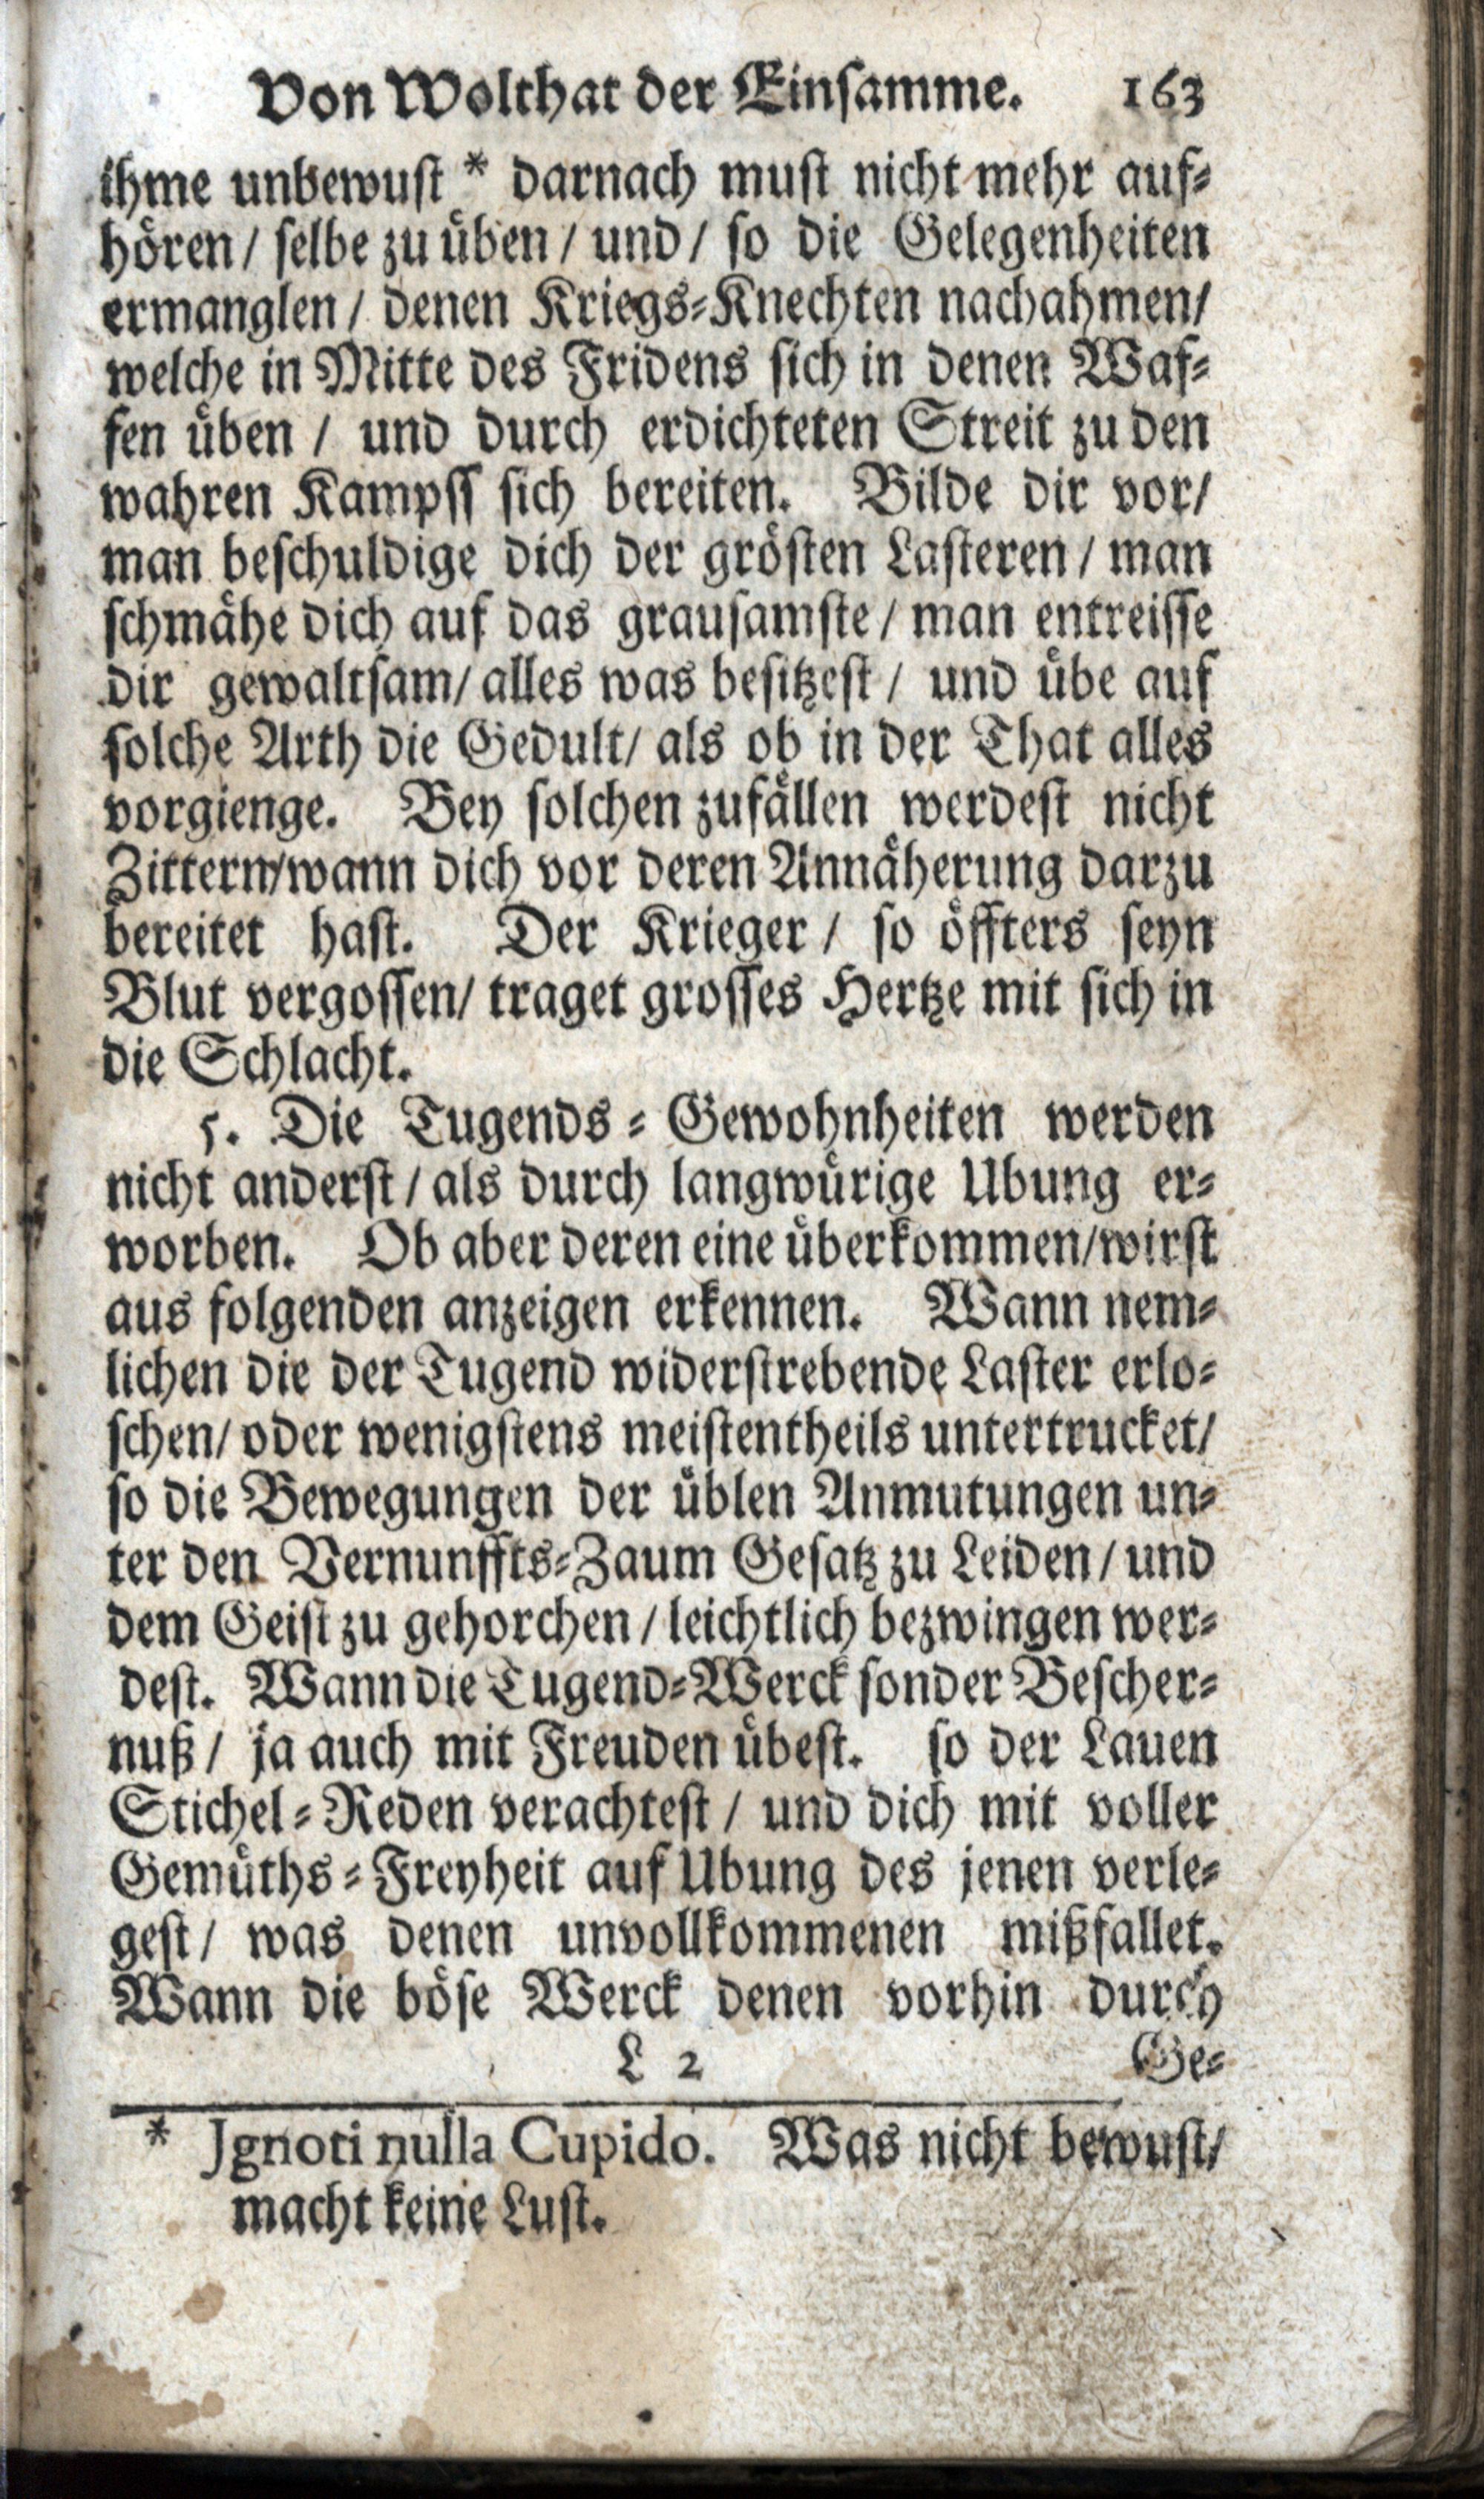 Von Wolthat der Einsamme. 163
ihme unbewust * darnach must nicht mehr auf-
hören / selbe zu üben / und / so die Gelegenheiten
ermanglen / denen Kriegs-Knechten nachahmen/
welche in Mitte des Fridens sich in denen Waf-
fen üben / und durch erdichteten Streit zu den
wahren Kampff sich bereiten. Bilde dir vor/
man beschuldige dich der grösten Lasteren / man
schmähe dich auf das grausamste / man entreisse
dir gewaltsam/ alles was besitzest / und übe auf
solche Arth die Gedult/ als ob in der That alles
vorgienge. Bey solchen zufällen werdest nicht
Zittern/wann dich vor deren Annäherung darzu
bereitet hast. Der Krieger / so öffters seyn
Blut vergossen/ traget grosses Hertze mit sich in
die Schlacht.
5. Die Tugends-Gewohnheiten werden
nicht anderst / als durch langwürige Ubung er-
worben. Ob aber deren eine überkommen/wirst
aus folgenden anzeigen erkennen. Wann nem-
lichen die der Tugend widerstrebende Laster erlo-
schen/ oder wenigstens meistentheils untertrucket/
so die Bewegungen der üblen Anmutungen un-
ter den Vernunffts-Zaum Gesatz zu Leiden / und
dem Geist zu gehorchen / leichtlich bezwingen wer-
dest. Wann die Tugend-Werck sonder Bescher-
nuß / ja auch mit Freuden übest. so der Lauen
Stichel-Reden verachtest / und dich mit voller
Gemüths-Freyheit auf Ubung des jenen verle-
gest / was denen unvollkommenen mißfallet.
Wann die böse Werck denen vorhin durch
L 2 Ge-
* Jgnoti nulla Cupido. Was nicht bewust/
macht keine Lust.